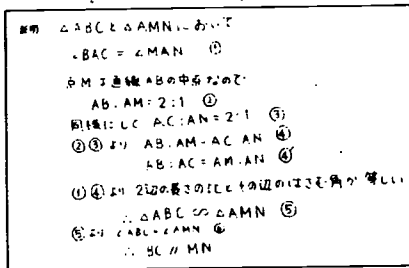 証明 △ABCと△AMNにおいて
∠BAC = ∠MAN ①
点Mは直線ABの中点なので
AB:AM=2:1 ②
同様にして AC:AN=2:1 ③
②③より AB:AM=AC:AN ④
AB:AC=AM:AN ④
①④より 2辺の長さの比とその辺のはさむ角が等しい
∴ △ABC ∽ △AMN ⑤
⑤より ∠ABC=∠AMN ⑥
∴ BC // MN